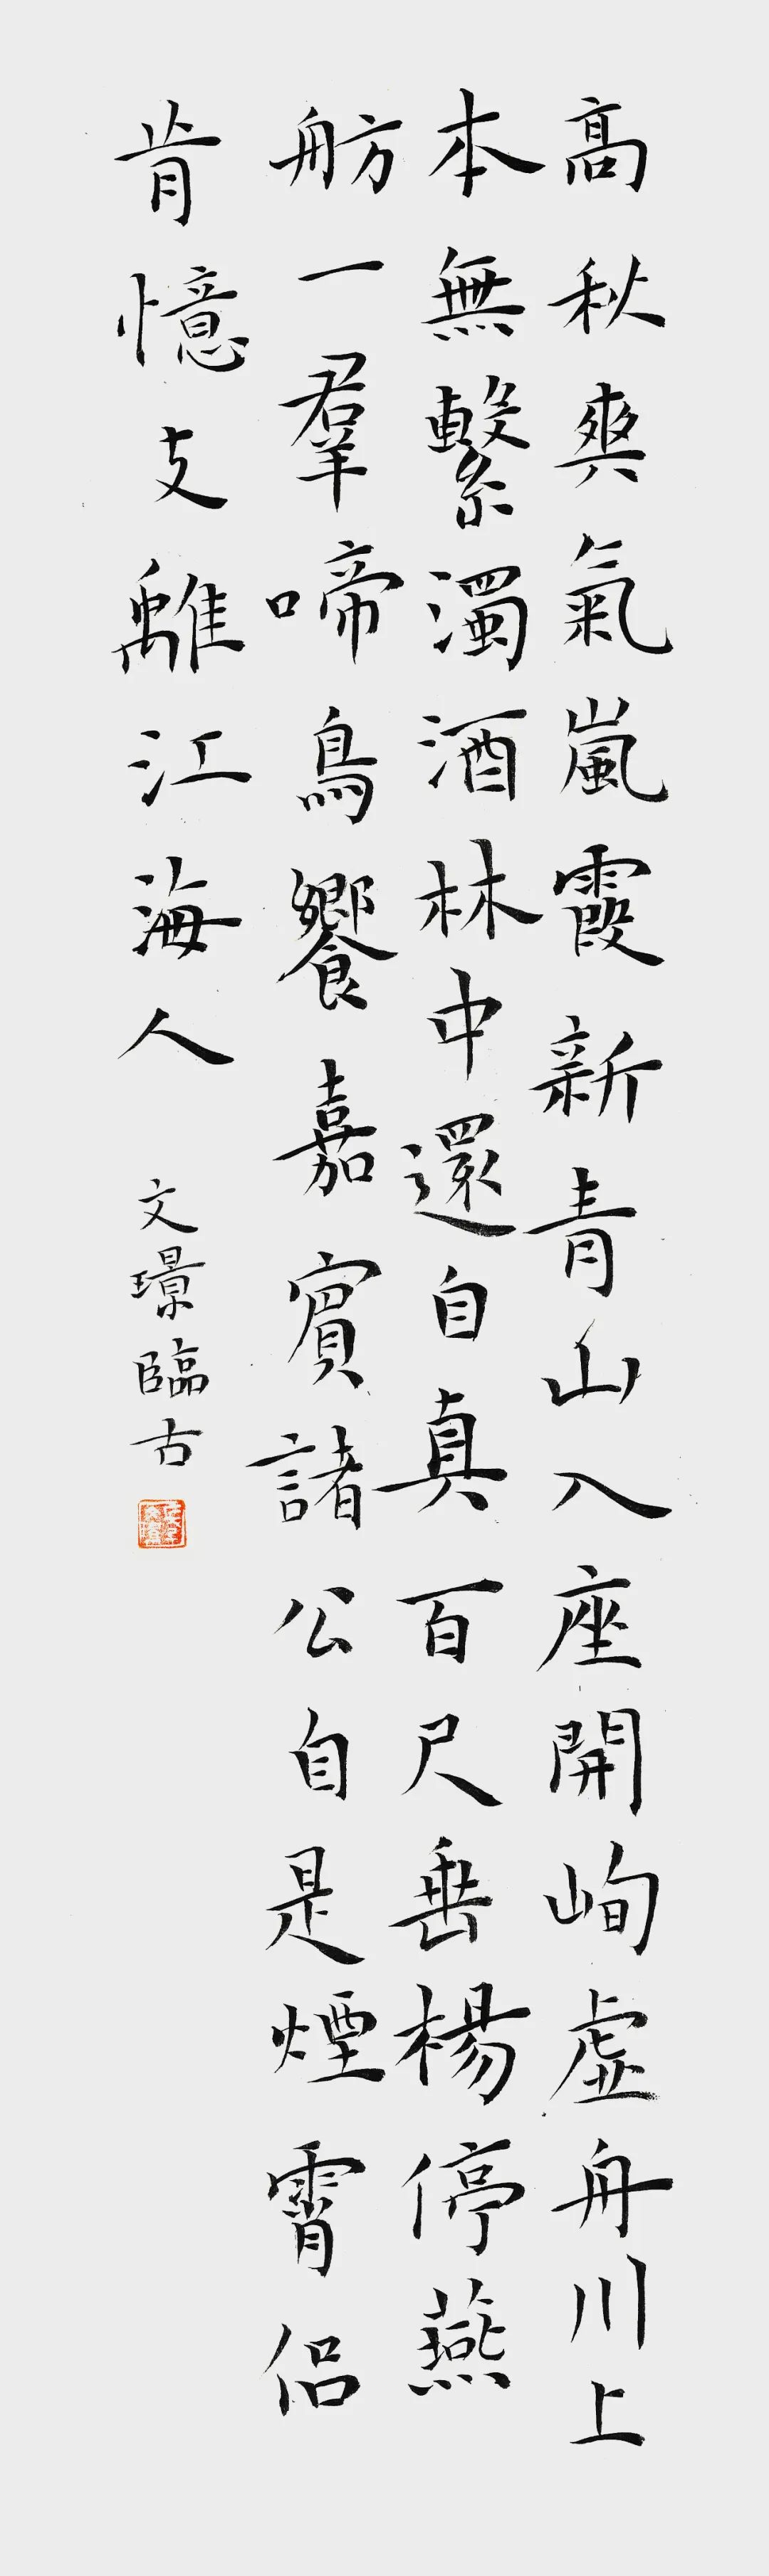 高秋爽氣嵐霞新青山入座開峋虛舟川上
本無繫濁酒林中還自真百尺垂楊停燕
舫一羣啼鳥饗嘉賓諸公自是煙霄侶
肯憶支離江海人
文璟臨古